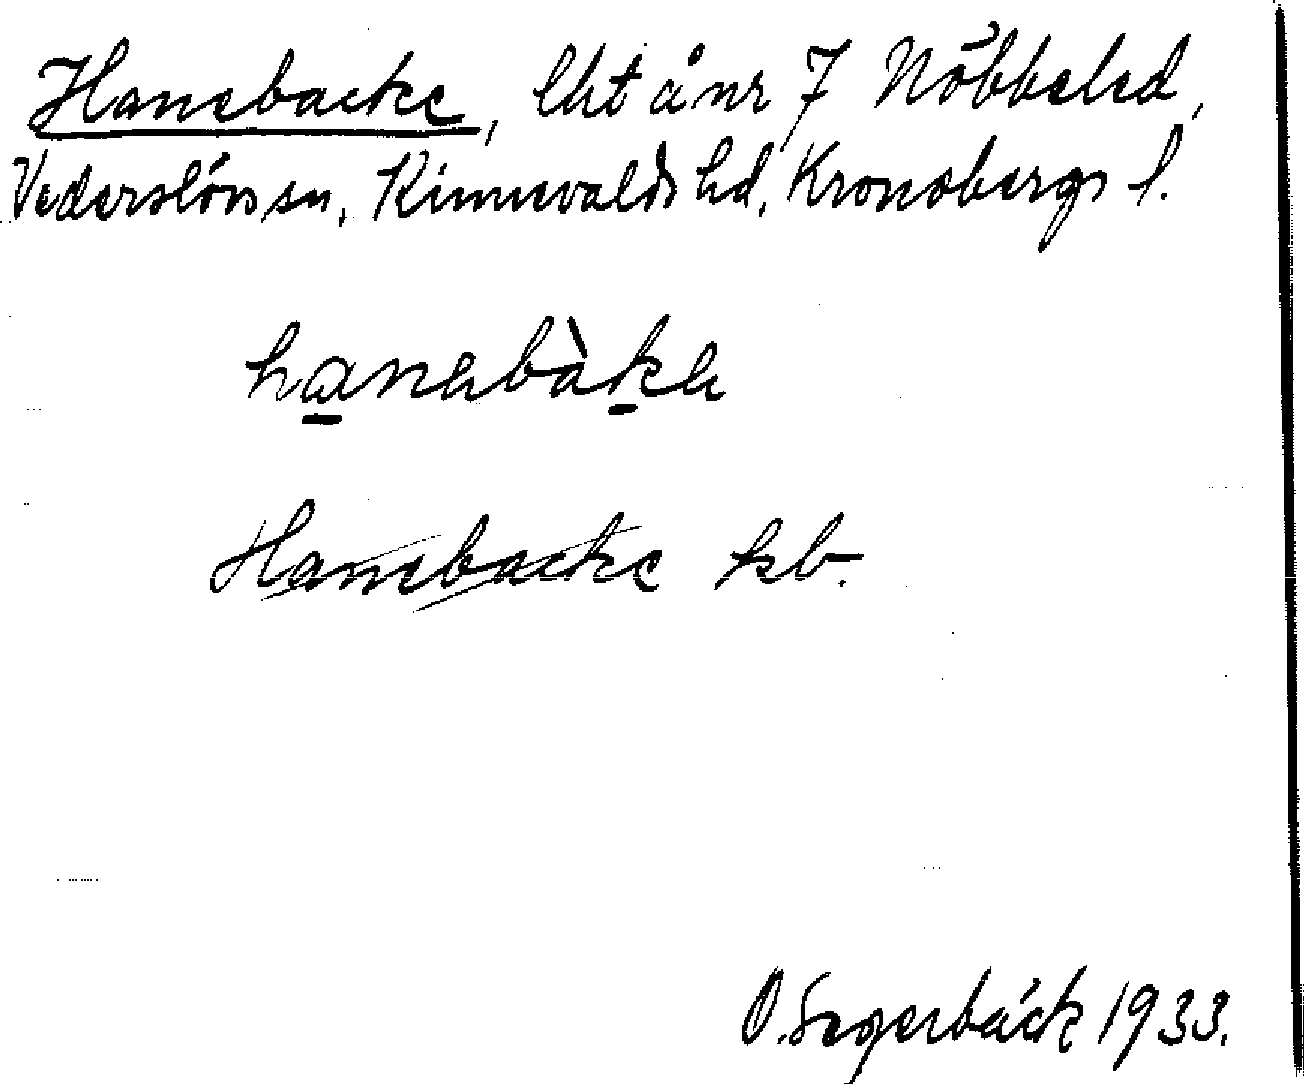 Hanebacke, lht å nr 7 Nöbbeled,
Vederslövs sn, Kinnevalds hd, Kronobergs l.
hanabàka
Hanebacke kb.
O. Segerbäck 1933.